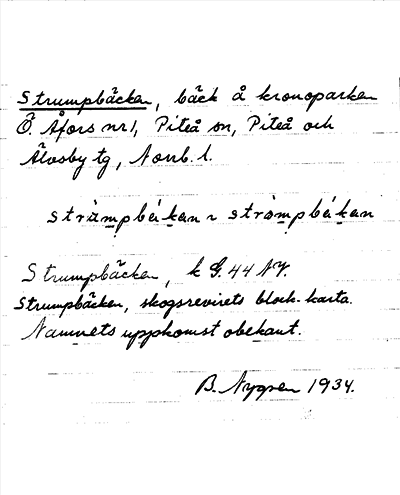 Strumpbäcken, bäck å kronoparken
Ö. Åfors nr 1, Piteå sn, Piteå och
Älvsby tg, Norrb. l.
stràmpbákan ~ stràmpbákan
Strumpbäcken, k G. 44 NV.
Strumpbäcken, skogsrevirets block-karta.
Namnets uppkomst obekant.
B. Nygren 1934.